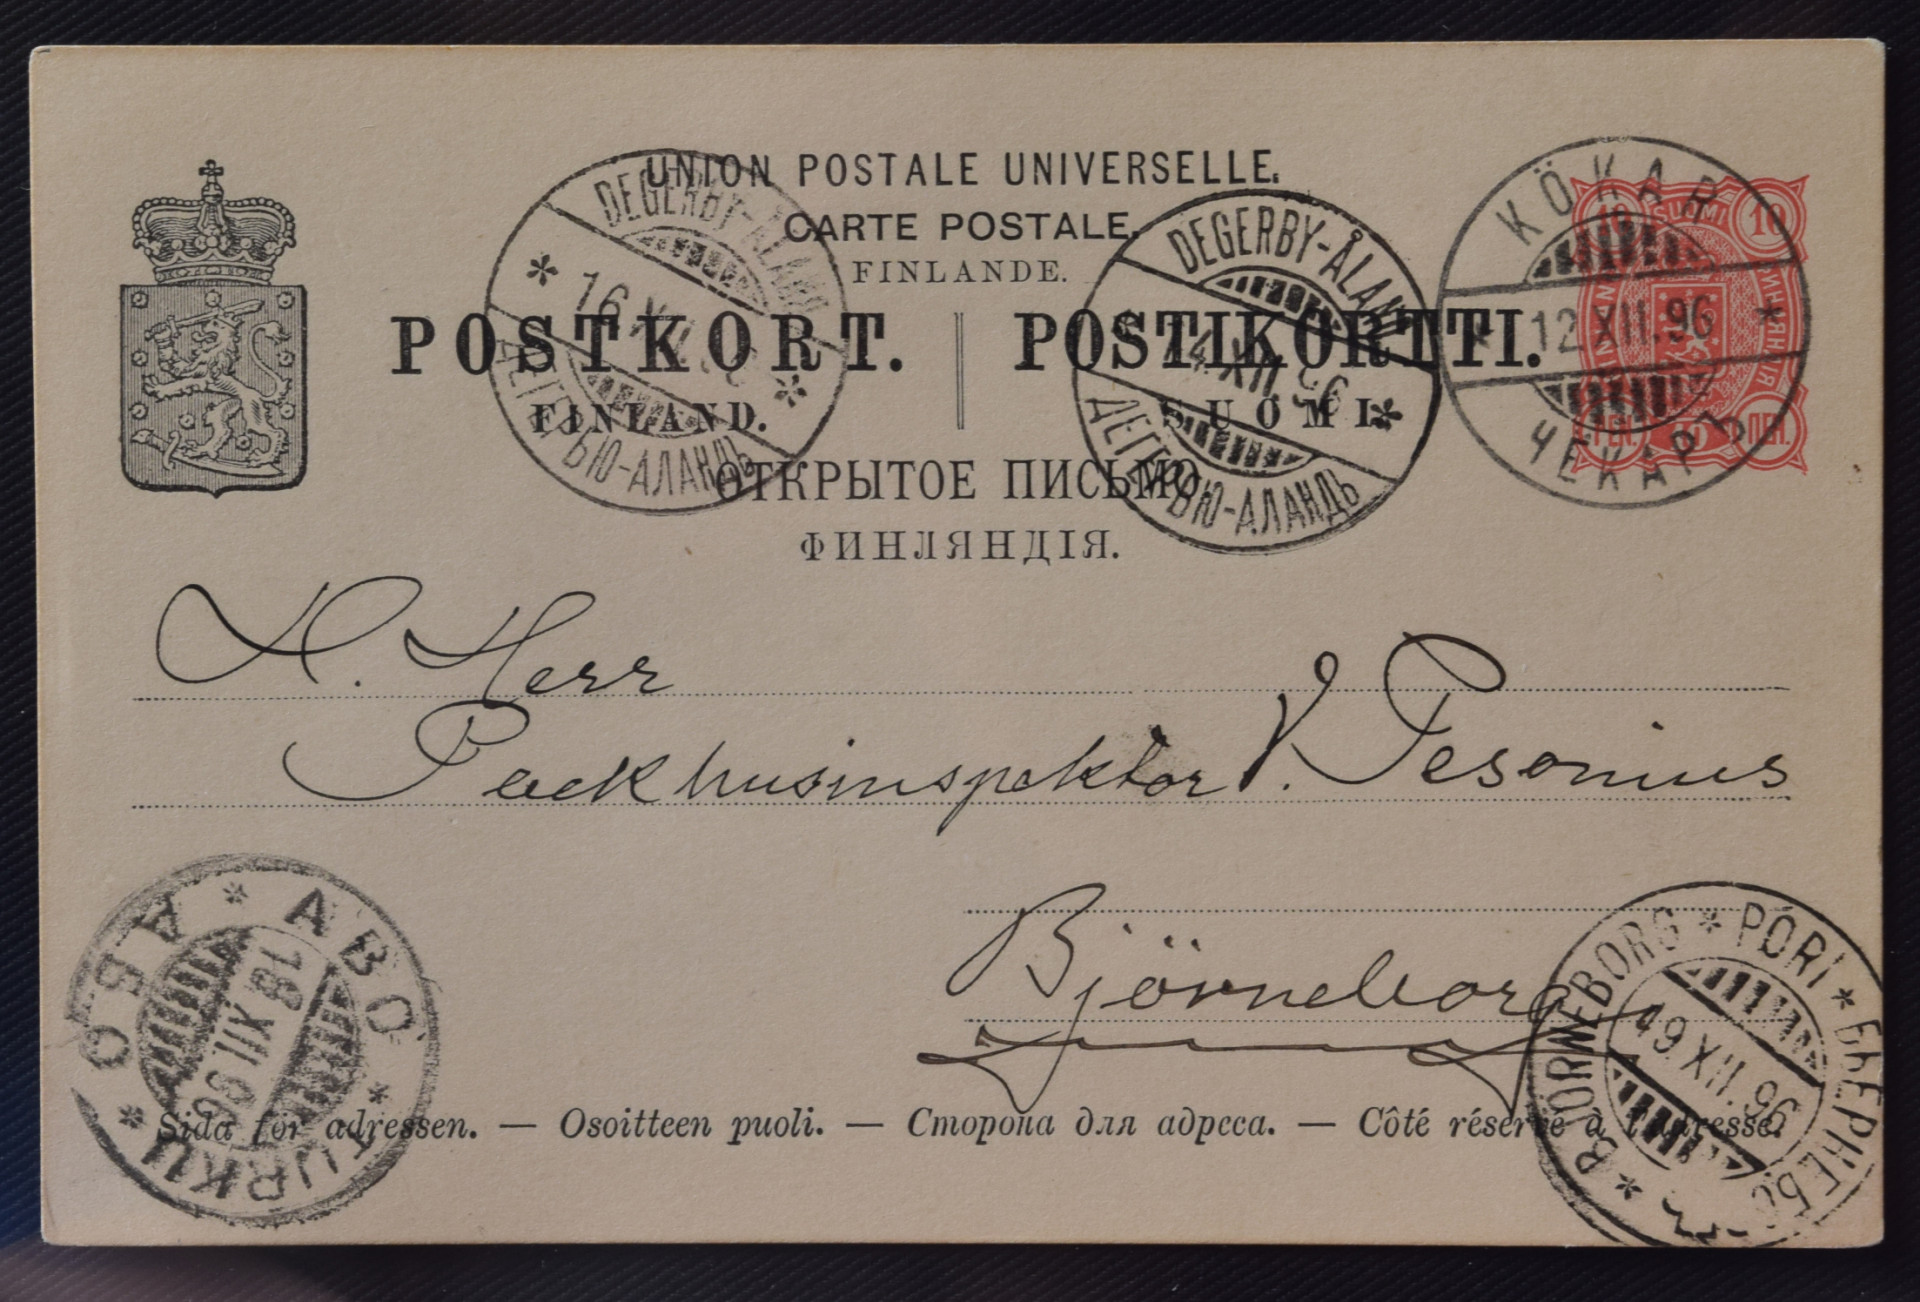 UNION POSTALE UNIVERSELLE.
CARTE POSTALE.
FINLANDE.
POSTKORT. POSTIKORTTI.
FINLAND. SUOMI.
ОТКРЫТОЕ ПИСЬМО.
ФИНЛЯНДІЯ.
DEGERBY-ÅLAND
16 XII
ДЕГЕРБЮ-АЛАНДЪ
DEGERBY-ÅLAND
14 XII 96
ДЕГЕРБЮ-АЛАНДЪ
KÖKAR
12 XII.96
ЧЕКАРЪ
10 SUOMI 10
PEN. ПЕН.
H. Herr
Packhusinspektor V. Pesonius
Björneborg
ÅBO * ABO * TURKU *
18 XII 96
BJÖRNEBORG * PORI * БЬЕРНЕБ
19.XII.96
Sida för adressen. — Osoitteen puoli. — Сторона для адреса. — Côté réservé à l'adresse.